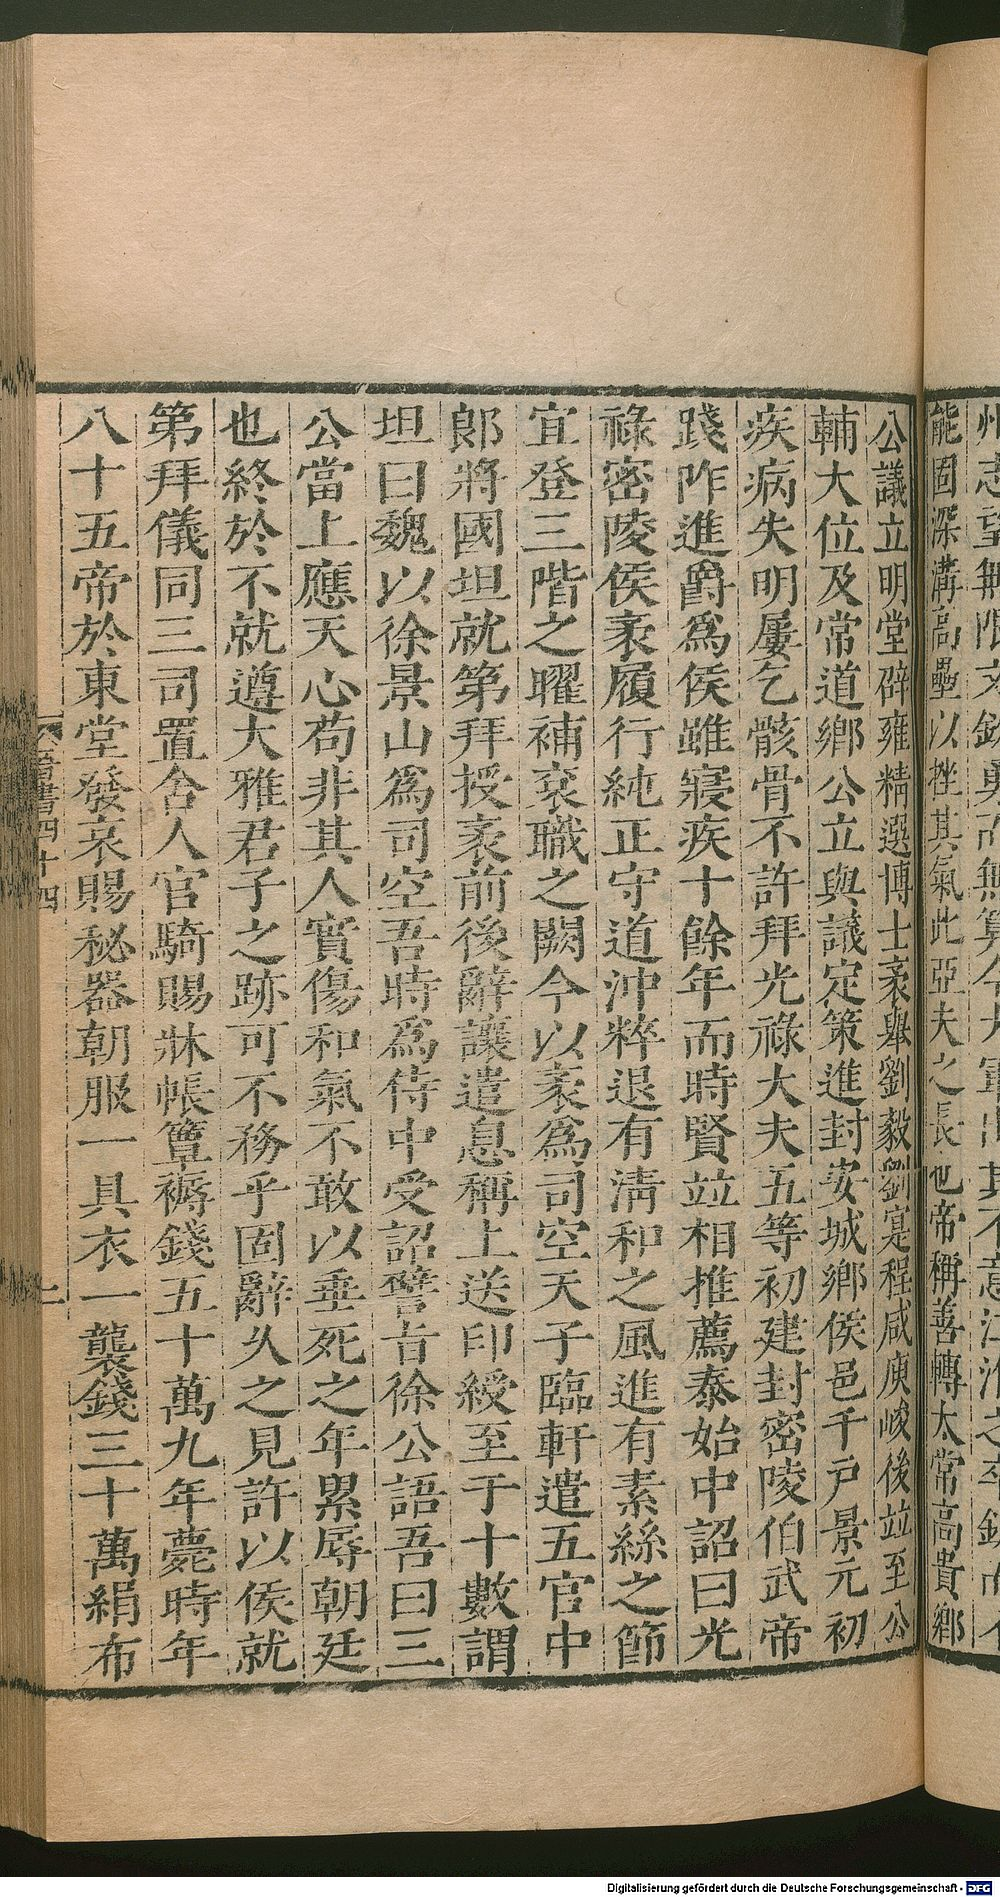 州志望無限文欽勇而無算今大軍出其不意江淮之卒銳而不
能固深溝高壘以挫其氣此亞夫之長也帝稱善轉太常高貴鄉
公議立明堂辟雍精選博士袤舉劉毅劉寔程咸庾峻後並至公
輔大位及常道鄉公立與議定策進封安城鄉侯邑千戶景元初
疾病失明屢乞骸骨不許拜光祿大夫五等初建封密陵伯武帝
踐阼進爵爲侯雖寢疾十餘年而時賢並相推薦泰始中詔曰光
祿密陵侯袤履行純正守道沖粹退有清和之風進有素絲之節
宜登三階之曜補衮職之闕今以袤爲司空天子臨軒遣五官中
郎將國坦就第拜授袤前後辭讓遣息稱上送印綬至于十數謂
坦曰魏以徐景山爲司空吾時爲侍中受詔譬旨徐公語吾曰三
公當上應天心苟非其人實傷和氣不敢以垂死之年累辱朝廷
也終於不就遵大雅君子之跡可不務乎固辭久之見許以侯就
第拜儀同三司置舍人官騎賜牀帳簟褥錢五十萬九年薨時年
八十五帝於東堂發哀賜秘器朝服一具衣一襲錢三十萬絹布
晉書四十四
二
Digitalisierung gefördert durch die Deutsche Forschungsgemeinschaft - DFG